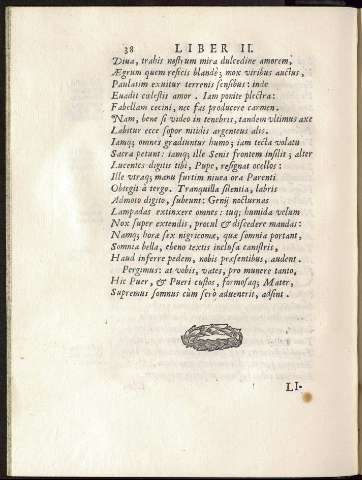 38 LIBER II.
Diua, trahis nostrum mira dulcedine amorem,
Ægrum quem reficis blandè; mox viribus auctus,
Paulatim exuitur terrenis sensibus: inde
Euadit cælestis amor. Iam ponite plectra:
Fabellam cecini, nec fas producere carmen.
Nam, bene si video in tenebris, tandem vltimus axe
Labitur ecce sopor nitidis argenteus alis.
Iamq; omnes gradiuntur humo; iam tecta volatu
Sacra petunt: iamq; ille Seni frontem insilit; alter
Lucentes digitis tibi, Pupe, resignat ocellos:
Ille vtraq; manu furtim niuea ora Parenti
Obtegit à tergo. Tranquilla silentia, labris
Admoto digito, subeunt: Genij nocturnas
Lampadas extinxere omnes: tuq; humida velum
Nox super extendis, procul & discedere mandas:
Namq; horæ sex nigricomæ, quæ somnia portant,
Somnia bella, ebeno textis inclusa canistris,
Haud inferre pedem, nobis præsentibus, audent.
Pergimus: at vobis, vates, pro munere tanto,
Hic Puer, & Pueri custos, formosaq; Mater,
Supremus somnus cùm serò aduenerit, adsint.
LI-